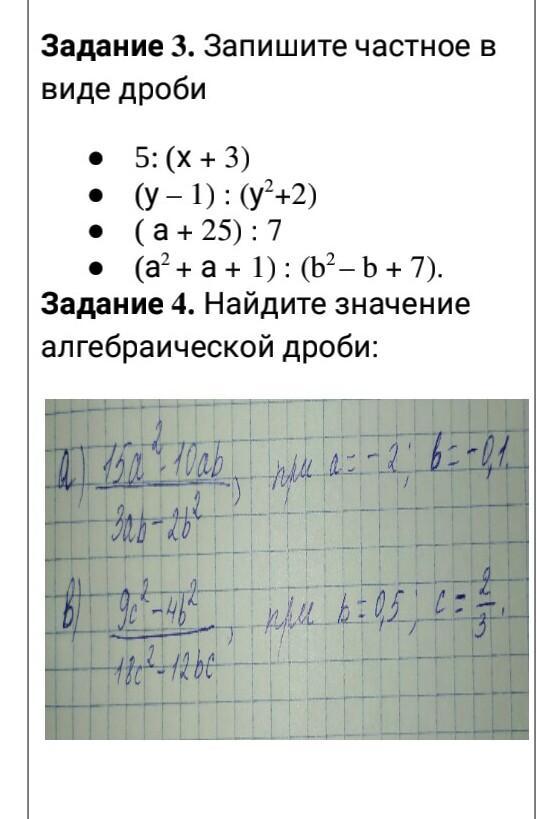 Задание 3. Запишите частное в
виде дроби
● 5: (x + 3)
● (y – 1) : (y²+2)
● ( a + 25) : 7
● (a² + a + 1) : (b² – b + 7).
Задание 4. Найдите значение
алгебраической дроби:
а) (15a² - 10ab)/(3ab - 2b²), при a = -2; b = -0,1.
в) (9c² - 4b²)/(18c² - 12bc), при b = 0,5; c = 2/3.